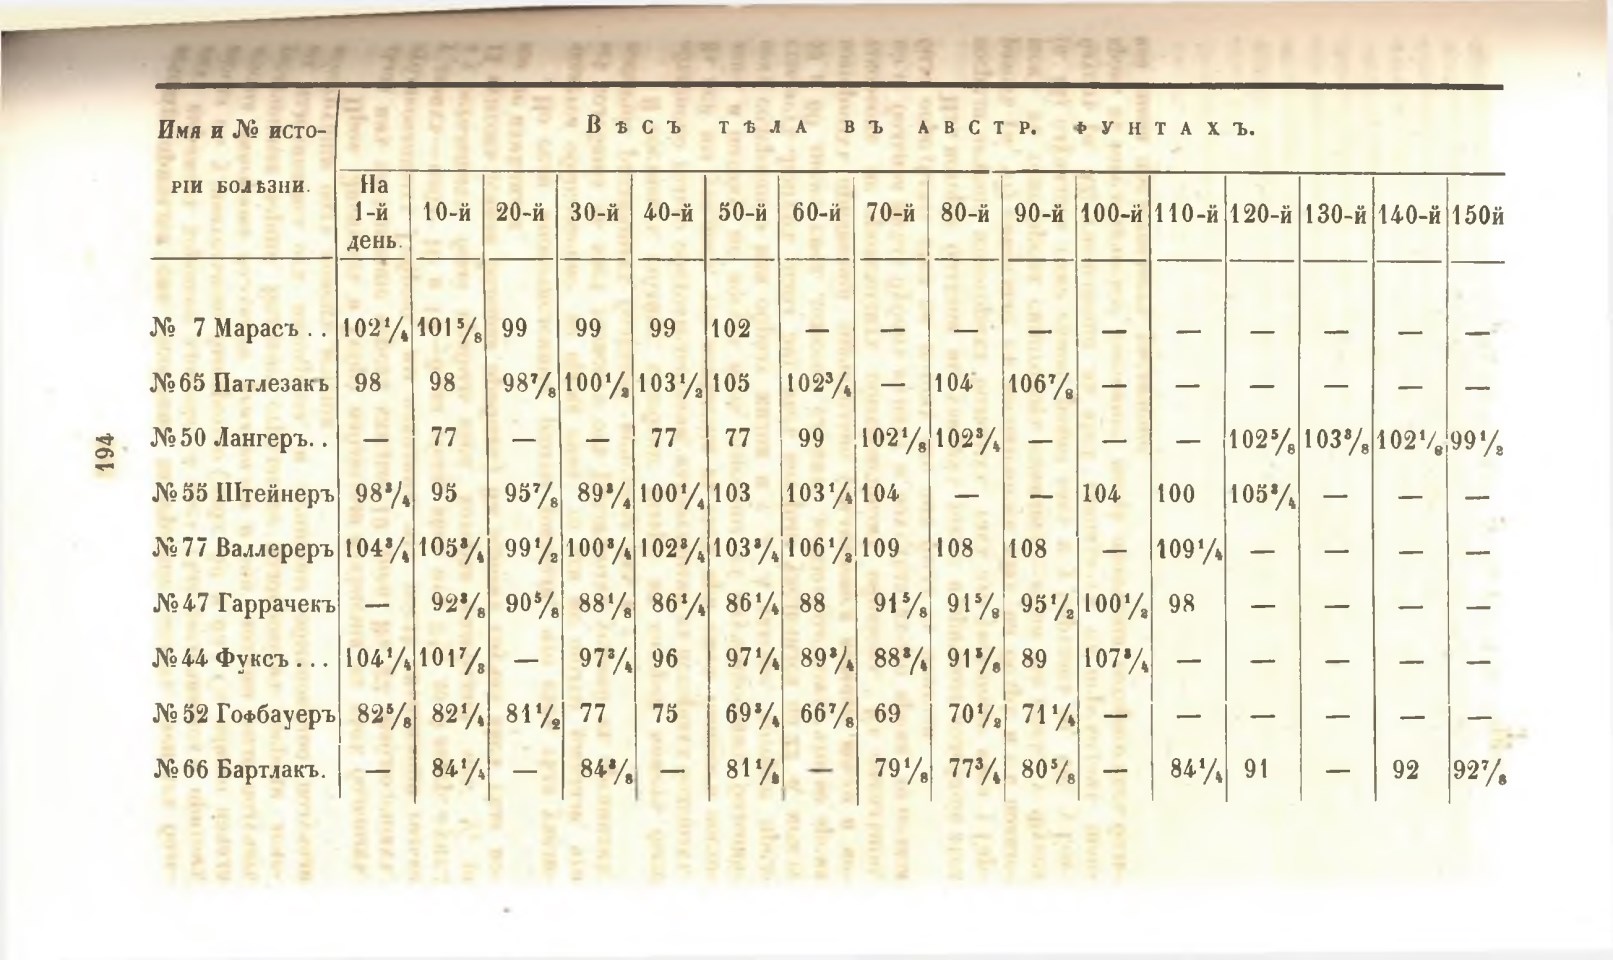 Имя и № исто-
рiи болѣзни.
Вѣсъ тѣла въ австр. фунтахъ.
На 1-й день. 10-й 20-й 30-й 40-й 50-й 60-й 70-й 80-й 90-й 100-й 110-й 120-й 130-й 140-й 150й
№ 7 Марасъ . . 102¹/₄ 101⁵/₈ 99 99 99 102 — — — — — — — — — —
№65 Патлезакъ 98 98 98⁷/₈ 100¹/₂ 103¹/₂ 105 102³/₄ — 104 106⁷/₈ — — — — — —
№50 Лангеръ. . — 77 — — 77 77 99 102¹/₈ 102³/₄ — — — 102⁵/₈ 103³/₈ 102¹/₈ 99¹/₂
№55 Штейнеръ 98³/₄ 95 95⁷/₈ 89³/₄ 100¹/₄ 103 103¹/₄ 104 — — 104 100 105³/₄ — — —
№77 Валлереръ 104³/₄ 105³/₄ 99¹/₂ 100³/₄ 102³/₄ 103³/₄ 106¹/₂ 109 108 108 — 109¹/₄ — — — —
№47 Гаррачекъ — 92³/₈ 90⁵/₈ 88¹/₈ 86¹/₄ 86¹/₄ 88 91⁵/₈ 91⁵/₈ 95¹/₂ 100¹/₂ 98 — — — —
№44 Фуксъ . . . 104¹/₄ 101⁷/₈ — 97³/₄ 96 97¹/₄ 89³/₄ 88³/₄ 91³/₈ 89 107³/₄ — — — — —
№52 Гофбауеръ 82⁵/₈ 82¹/₄ 81¹/₂ 77 75 69³/₄ 66⁷/₈ 69 70¹/₂ 71¹/₄ — — — — — —
№66 Бартлакъ. — 84¹/₄ — 84³/₈ — 81¹/₈ — 79¹/₈ 77³/₄ 80⁵/₈ — 84¹/₄ 91 — 92 92⁷/₈
194